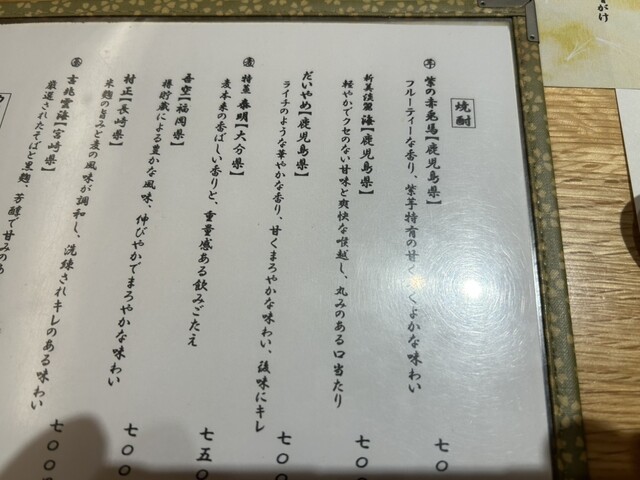 焼酎
芋 紫の赤兎馬【鹿児島県】
フルーティーな香り、紫芋特有の甘く くよかな味わい
七〇
新美淡麗 海【鹿児島県】
軽やかでクセのない甘味と爽快な喉越し、丸みのある口当たり
七〇
だいやめ【鹿児島県】
ライチのような華やかな香り、甘くまろやかな味わい、後味にキレ
七〇
麦 特蒸 泰明【大分県】
麦本来の香ばしい香りと、重量感ある飲みごたえ
七五〇
吾空【福岡県】
樽貯蔵による豊かな風味、伸びやかでまろやかな味わい
七〇
村正【長崎県】
米麹の旨みと麦の風味が調和し、洗練されキレのある味わい
七〇〇
古兆雲海【宮崎県】
厳選されたそばと黒麹、芳醇で甘みのあ
がけ